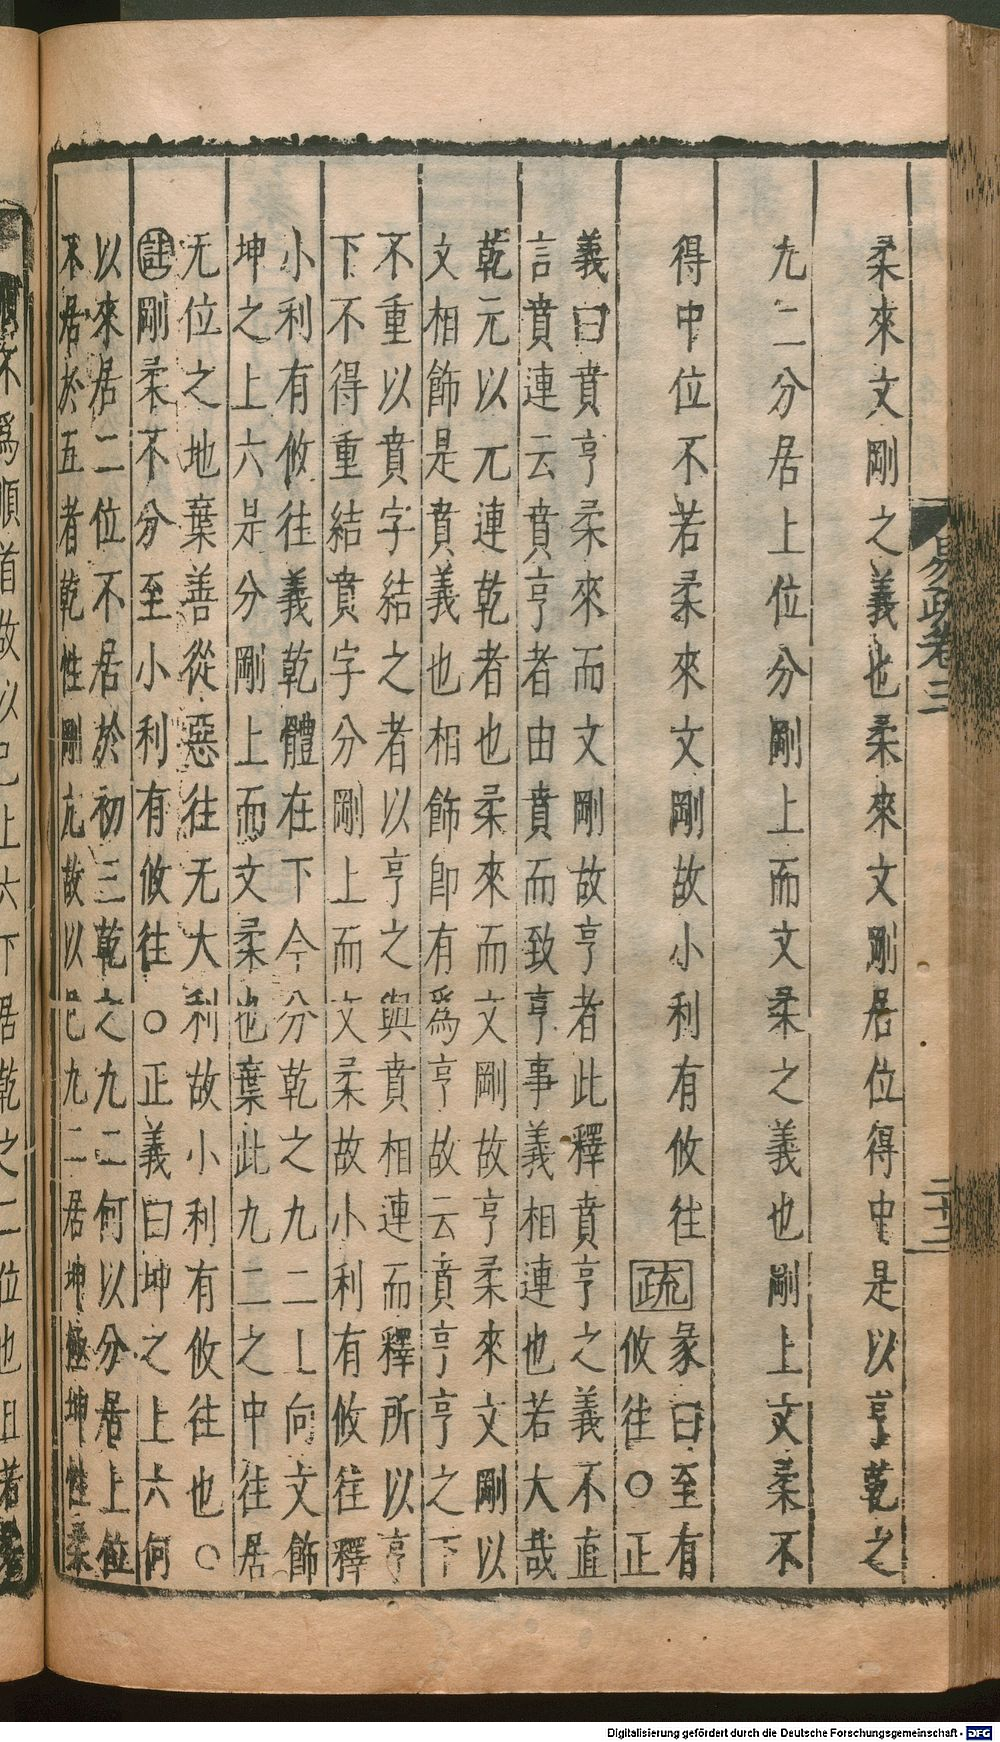 易疏卷三
二十三
柔來文剛之義也柔來文剛居位得中是以亨乾之
九二分居上位分剛上而文柔之義也剛上文柔不
得中位不若柔來文剛故小利有攸往
疏
彖曰至有
攸往○正
義曰賁亨柔來而文剛故亨者此釋賁亨之義不直
言賁連云賁亨者由賁而致亨事義相連也若大哉
乾元以元連乾者也柔來而文剛故亨柔來文剛以
文相飾是賁義也相飾即有為亨故云賁亨亨之下
不重以賁字結之者以亨之與賁相連而釋所以亨
下不得重結賁字分剛上而文柔故小利有攸往釋
小利有攸往義乾體在下今分乾之九二上向文飾
坤之上六是分剛上而文柔也棄此九二之中往居
无位之地棄善從惡往无大利故小利有攸往也○
註剛柔不分至小利有攸往○正義曰坤之上六何
以來居二位不居於初三乾之九二何以分居上位
不居於五者乾性剛亢故以己九二居坤極坤性柔
順不為順首故以己上六下居乾之二位也且若
Digitalisierung gefördert durch die Deutsche Forschungsgemeinschaft - DFG